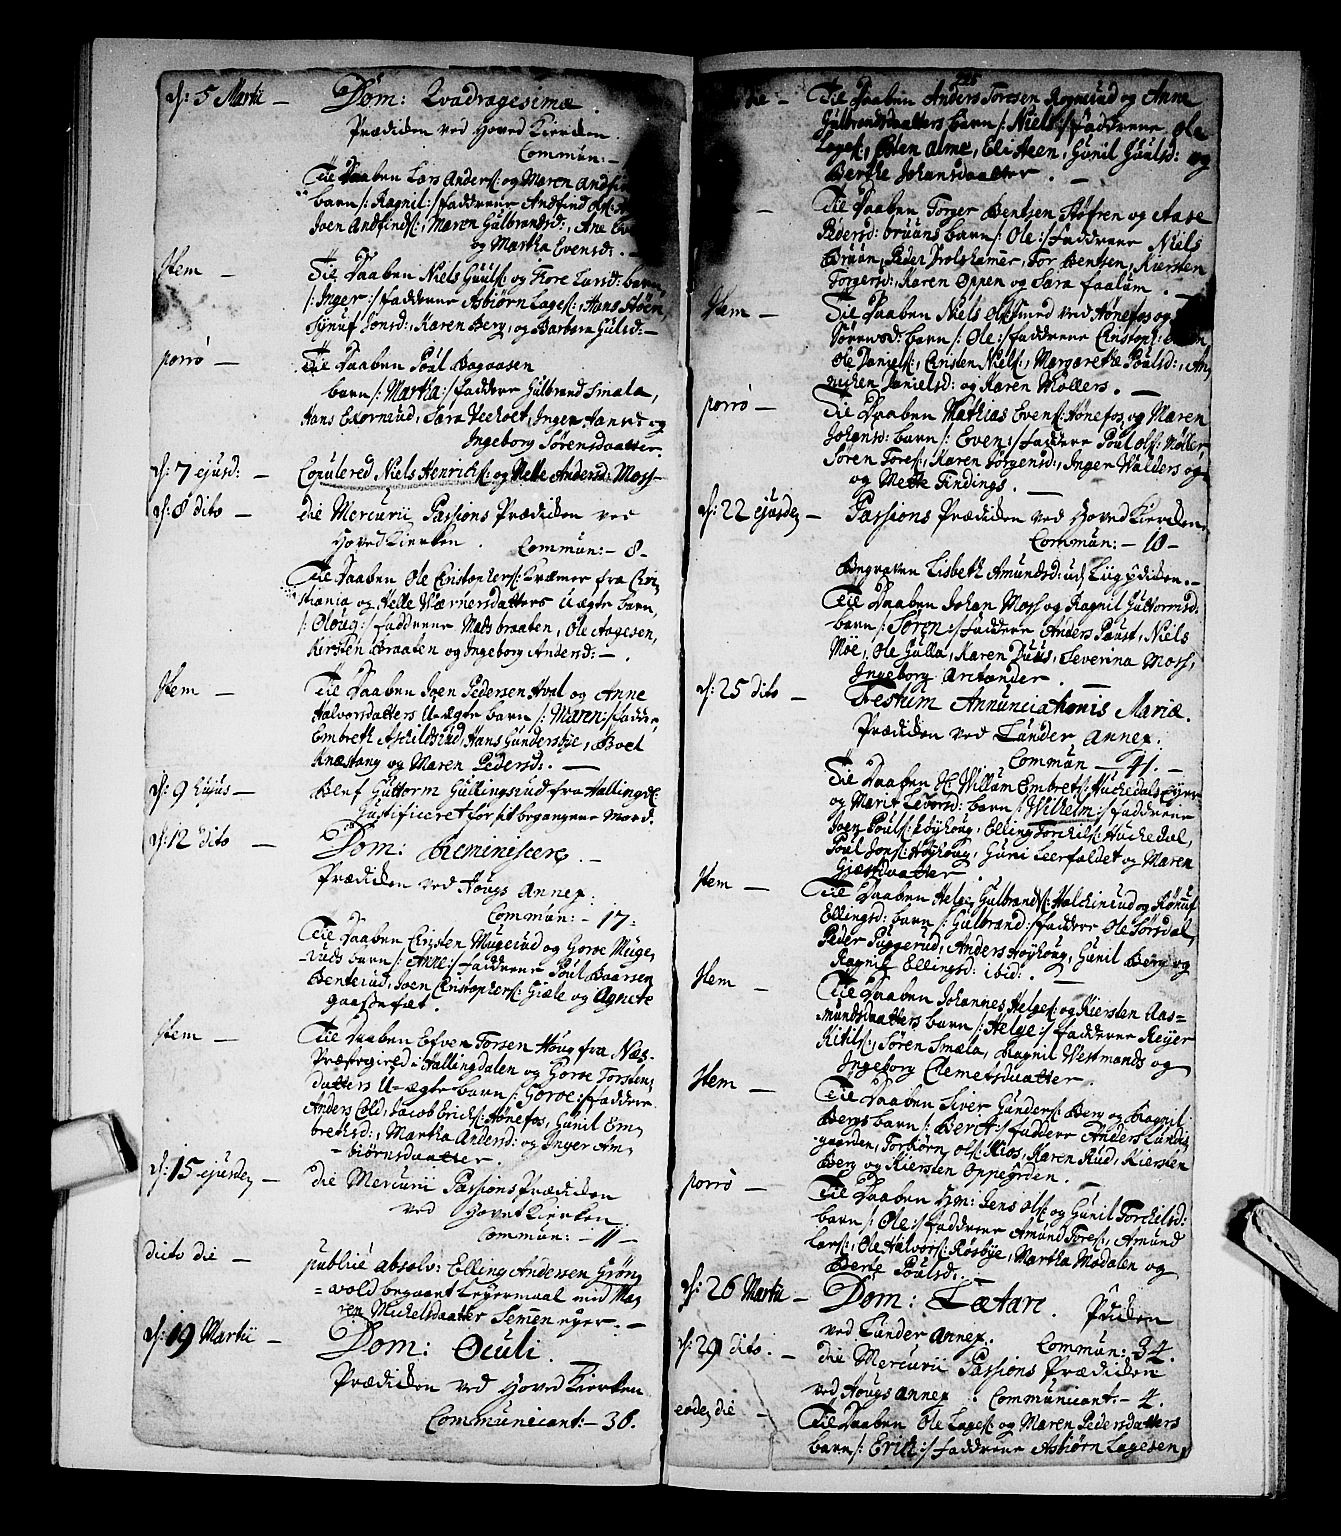 d: 5 Martii — Dom: Qvadragesimæ.
Prædicken ved Hoved Kiercken
Commun: —
Til Daaben Lars Anders: og Maren Andfin
barn /: Ragnil :/ faddrene Andfind Ols:
Joen Andfinds:, Maren Gulbrandsd:, Ane Ev
og Martha Evensd: —
Item — Til Daaben Niels Guuls: og Tore Larsd: barn
/: Inger :/ faddrene Asbiørn Lages:, Hans Støen
Synuf Jonsd:, Karen Berg, og Barbara Gulsd: —
porrò — Til Daaben Poul Bagaasen
barn /: Martha :/ faddere Gulbrand Smala,
Hans Exorneud, Sara Veeholt, Inger Hannæ og
Ingeborg Sørensdaatter.
d: 7 ejusd: — Copulered Niels Henrichs: og Helle Andersd: Moss —
d: 8 dito — die Mercurii Passions Prædicken ved
Hoved Kiercken. Commun: — 8 —
Til Daaben Ole Christophers: Kræmer fra Chri
stiania og Helle Wærnersdatters Uægte barn,
/: Oloug :/ faddrene Mads braaten, Ole Aagesen,
Kersten Braaten og Ingeborg Andersd: —
Item — Til Daaben Joen Pedersen Hval og Anne
Halvorsdatters U-ægte barn /: Maren :/ fadde,
Embreth Aschildsrud, Hans Gundersbye, Boel
Knæstang og Maren Pedersd: —
d: 9 hujus — Blef Guttorm Gullingsrud fra Hallingd:
Justificeret for sit begangene Mord.
d: 12 dito — Dom: Reminiscere. —
Prædicken ved Hougs Annex.
Commun: — 17 —
Til Daaben Christen Mugerud og Goroe Muge,
ruds barn /: Anne :/ faddrene Poul Baarsen
Benterud, Joen Christophers: Giæle og Agnete
Gaasefæt.
Item — Til Daaben Efven Torsen Houg fra Næs-
Præstegield i Hallingdalen og Goroe Torsten,
datters U-ægte barn /: Goroe :/ faddere
Anders Cold, Jacob Erichs: Hønefos, Gunil Em-
brethsd:, Martha Andersd: og Inger Am-
= biørnsdaatter.
d: 15 ejusdem — die Mercurii Passions Prædicken
ved Hovet Kiercken.
Commun: — 11 —
dicto die — publicè absolv: Elling Andersen Grøn,
= vold begaaet Lejermaal med Ma,
ren Michelsdaatter Semen eyer. —
d: 19 Martii — Dom: Oculi.
Prædicken ved Hoved Kiercken
Communicant: — 36.
225
die — Til Daaben Anders Toresen Rognerud og Anne
Gulbrandsdaatters barn /: Niels :/ faddrene Ole
Lages:, Peden Alme, Eli Heen, Gunil Guulsd: og
Berthe Johansdaatter. —
— Til Daaben Torger Bentsen Støfren og Aase
Pedersd: bruuns barn /: Ole :/ faddrene Niels
Bruun, Peder Trolshamer, Tor Bentsen, Kiersten
Torgersd: Karen Oppen og Sara Faalum. —
Item — Til Daaben Niels Ols: smed ved Hønefos og
Sørensd: barn /: Ole :/ faddrene Christoph:
Ole Daniels:, Christen Niels:, Margarethe Poulsd:, An,
nichen Danielsd: og Karen Møllers. —
porrò — Til Daaben Mathias Evens: Hønefos og Maren
Johansd: barn /: Even :/ faddrene Poul Ols: Møller,
Søren Tores:, Karen Jørgensd:, Inger Walders og
og Mette Findings. —
d: 22 ejusdem — Passions Prædicken ved Hoved Kiercken.
Commun: — 10 —
Begraven Lisbeth Amundsd: ud Liigprdicken. —
Til Daaben Johan Moss og Ragnil Guttormsd:
barn /: Søren :/ faddrene Anders Paust, Niels
Moe, Ole Gulla, Karen Duus, Severina Moss,
Ingeborg Arctander.
d: 25 dito — Festum Annunciationis Mariæ.
Prædicken ved Lunder Annex.
Commun — 41. —
Til Daaben H: Willum Embrets: Huchedals Eyer
og Marit Levorsd: barn /: Wilhelm :/ faddrene
Joen Pouls: Høyhoug, Elling Torchils: Huchedal,
Poul Jons: Høyhoug, Guri Leerfaldet og Maren
Giæstdaatter.
Item — Til Daaben Helge Gulbrands: Halchinrud og Rønuf
Ellingsd: barn /: Gulbrand :/ faddere Ole Sørsdal,
Peder Puggerud, Anders Høyhoug, Gunil Berg og
Ragnil Ellingsd: ibid: —
Item — Til Daaben Johannes Helges: og Kiersten Aas-
mundsdaatters barn /: Helge :/ faddrene Reyer
Kitils:, Søren Smæla, Ragnil Westmands og
Ingeborg Clemetsdaatter.
Item — Til Daaben Siver Gunders: Berg og Ragnil
Bergs barn /: Beret :/ faddere Anders Lunds
gaarden, Torbiørn Ols: Kios, Karen Rud, Kiersten
Berg og Kiersten Oppegrden. —
porrò — Til Daaben Hm: Jens Ols: og Gunil Torchilsd:
barn /: Ole :/ faddrene Amund Tores:, Amund
Lars:, Ole Halvors: Røsbye, Martha Modalen og
Berte Poulsd: —
d: 26 Martii — Dom: Lætare. Prdicken
ved Lunder Annex. Commun: 34.
d: 29 dito. — die Mercurii Passions Prædicken
ved Hougs annex. Communicant: — 4.
eodem die — Til Daaben Ole Lages: og Maren Pedersdatters
barn /: Erich :/ faddrene Asbiørn Lagesen,